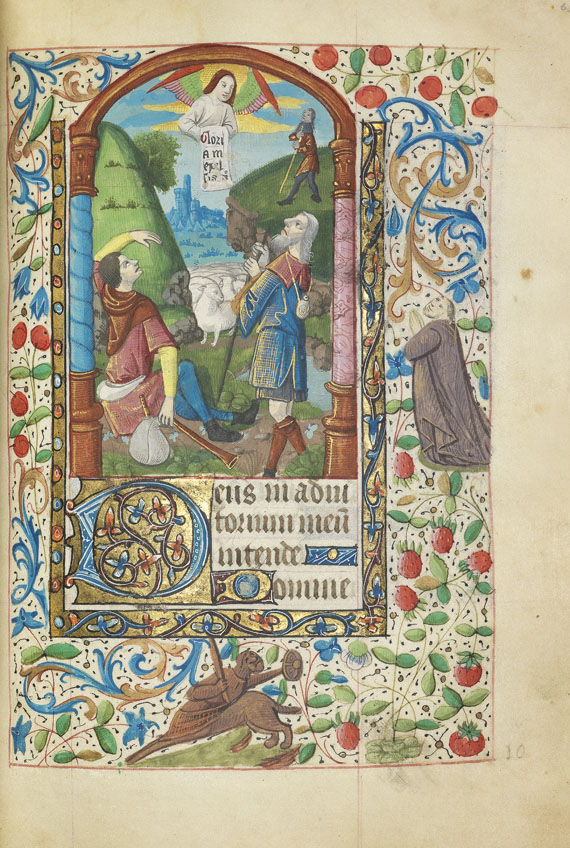 Glori
a in
excel
sis
eus in adiu
torium meū
intende
Domine
10